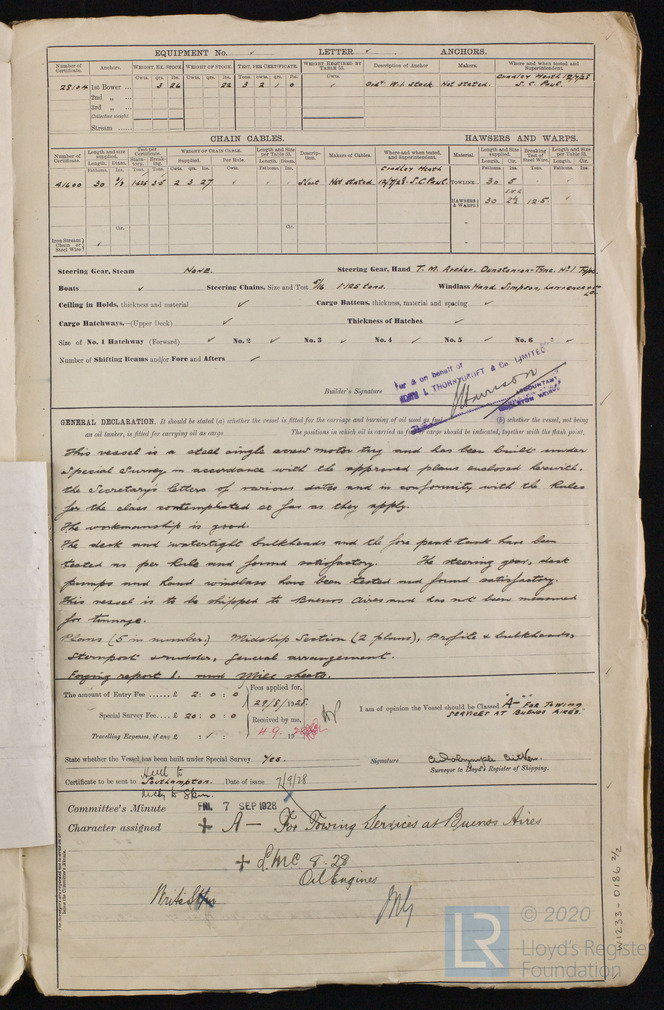 EQUIPMENT No. LETTER ANCHORS.
Number of Certificate. Anchors. WEIGHT, EX. STOCK. WEIGHT OF STOCK. TEST, PER CERTIFICATE. WEIGHT REQUIRED BY TABLE 53. Description of Anchor Makers. Where and when tested and Superintendent.
Cwts. qrs. lbs. Cwts. qrs. lbs. Tons. cwts. qrs. lbs. Cwts. Cradley Heath 12/7/28
28104 1st Bower 3 26 22 3 2 1 0 Ordy. W.I. Stock Not stated. S. C. Paul.
2nd „
3rd „
Collective weight
Stream
CHAIN CABLES. HAWSERS AND WARPS.
Number of Certificate. Length and size supplied. Test per Certificate. WEIGHT OF CHAIN CABLE. Length and Size per Table 53. Description. Makers of Cables. Where and when tested, and Superintendent. Material Length and Size supplied. Breaking Test of Steel Wire. Length and Size per Table 53.
Length. Diam. Statutory. Breaking. Supplied. Per Rule. Length. Diam. Length. Cir.
Fathoms. Ins. Tons. Tons. Cwts. qrs. lbs. Cwts. Fathoms. Ins. Cradley Heath Fathoms. Ins. Tons. Fathoms. Ins.
41600 30 2 3 27 Short Not stated 12/7/28 - S. C. Paul. TOWLINE 30 5
HAWSERS & WARPS 30 2½ 12.5
Cir. Cir.
Iron Stream Chain or Steel Wire
Steering Gear, Steam None. Steering Gear, Hand T. M. Archer. Dunston-on-Tyne. No 1 Type.
Boats Steering Chains, Size and Test 5/16 1.125 tons. Windlass Hand Simpson, Lawrence & Co.
Ceiling in Holds, thickness and material Cargo Battens, thickness, material and spacing
Cargo Hatchways.—(Upper Deck) Thickness of Hatches
Size of No. 1 Hatchway (Forward) No. 2 No. 3 No. 4 No. 5 No. 6
Number of Shifting Beams and/or Fore and Afters
For & on behalf of
JOHN I. THORNYCROFT & Co. LIMITED.
Builder's Signature Harrison
ACCOUNTANT
WORKS
GENERAL DECLARATION. It should be stated (a) whether the vessel is fitted for the carriage and burning of oil used as fuel (b) whether the vessel, not being
an oil tanker, is fitted for carrying oil as cargo The positions in which oil is carried as fuel or cargo should be indicated, together with the flash point.
This vessel is a steel single screw motor tug and has been built under
Special Survey in accordance with the approved plans enclosed herewith,
the Secretary's letters of various dates and in conformity with the Rules
for the class contemplated so far as they apply.
The workmanship is good.
The deck and watertight bulkheads and the fore peak tank have been
tested as per Rule and found satisfactory. The steering gear, deck
pumps and hand windlass have been tested and found satisfactory.
This vessel is to be shipped to Buenos Aires and has not been measured
for tonnage.
Plans (5 in number.) Midship Section (2 plans), Profile & bulkheads,
Sternpost & rudder, General arrangement.
Forging report 1. and Mill sheets.
The amount of Entry Fee ...... £ 2 : 0 : 0 Fees applied for,
29/8/1928.
Special Survey Fee.... £ 20 : 0 : 0 Received by me,
Travelling Expenses, if any £ 4.9. 1928
I am of opinion the Vessel should be Classed "A-" FOR TOWING
SERVICES AT BUENOS AIRES.
State whether the Vessel has been built under Special Survey Yes. Signature
Surveyor to Lloyd's Register of Shipping.
Certificate to be sent to Southampton. Date of issue 7/9/28
Committee's Minute FRI. 7 SEP 1928
Character assigned + A — For Towing Services at Buenos Aires
+ LMC 8.28
Oil Engines
Write
W1233-0186 2/2
LR
© 2020
Lloyd's Register
Foundation